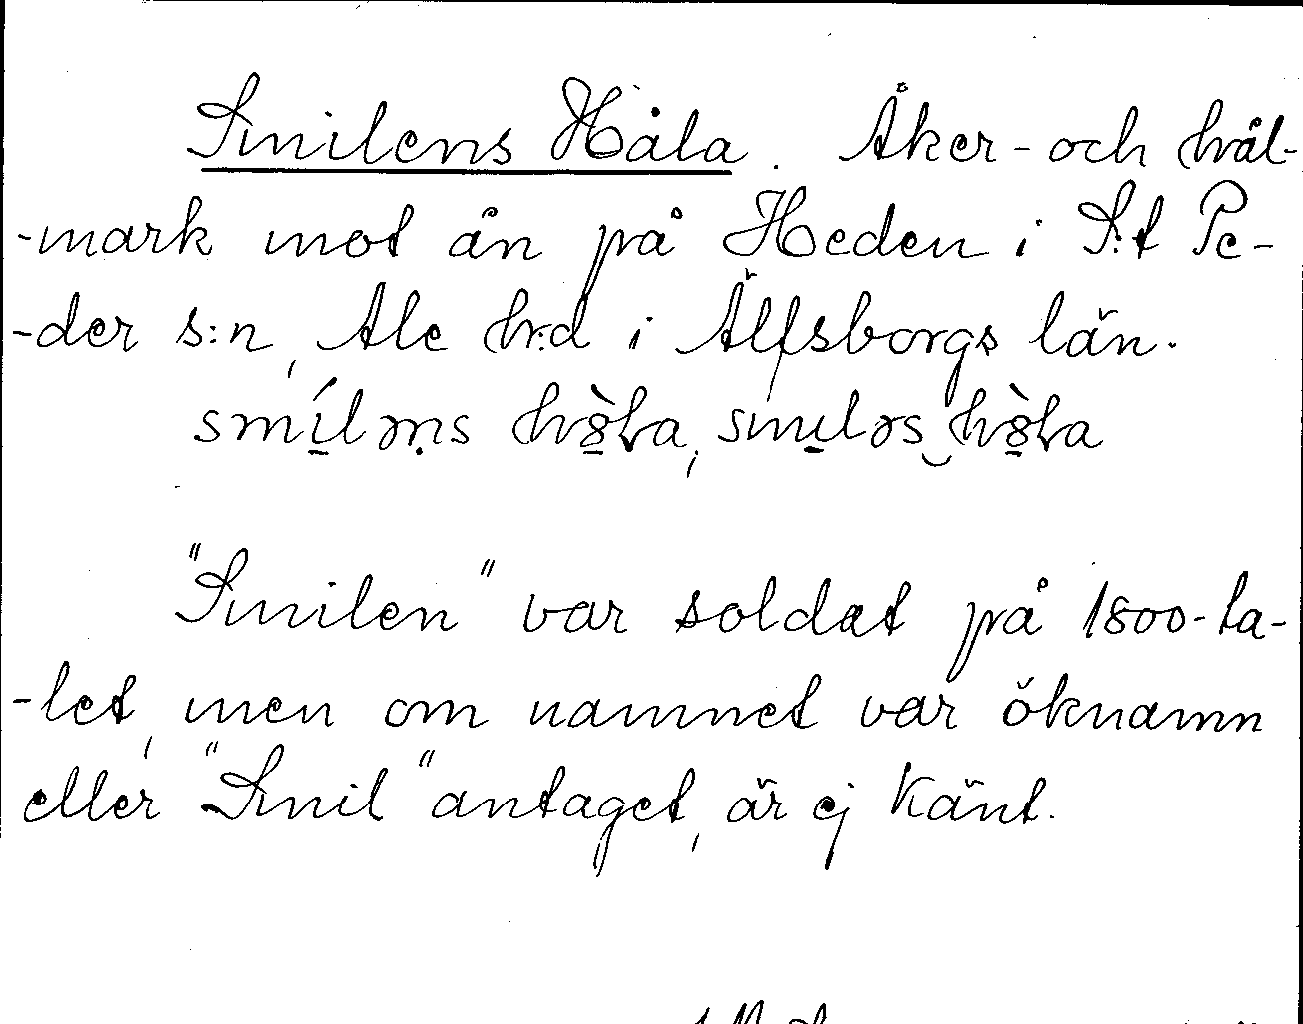 Smilens Håla. Åker- och hväl-
-mark mot ån på Heden i S:t Pe-
-der s:n, Ale hr:d i Älfsborgs län.
"Smilen" var soldat på 1800-ta-
-let, men om namnet var öknamn
eller "Smil" antaget, är ej känt.